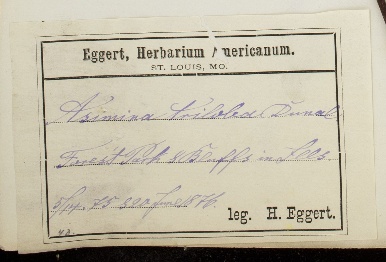 Eggert, Herbarium Americanum.
ST. LOUIS, MO.
Asimina triloba Dunal
Forest Park & Bluffs in Ills.
5/14. 75 June 1876.
leg. H. Eggert.